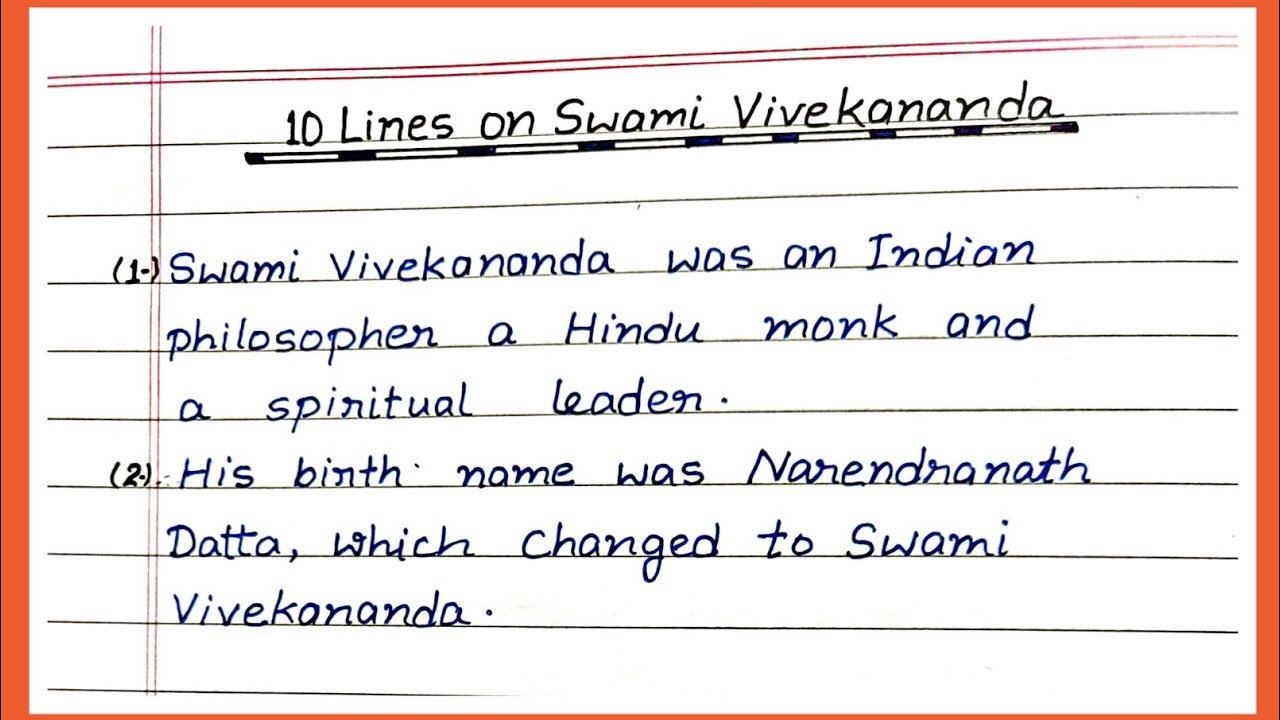 10 Lines on Swami Vivekananda
(1-) Swami Vivekananda was an Indian
philosopher a Hindu monk and
a spiritual leader.
(2-) His birth name was Narendranath
Datta, which changed to Swami
Vivekananda.